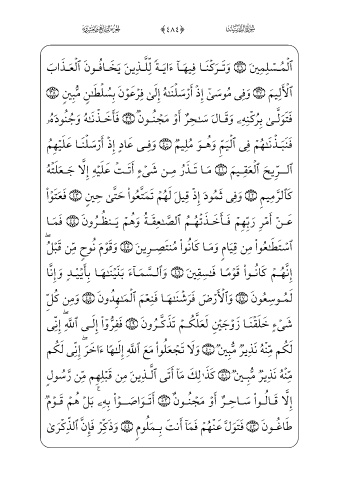 سُورَةُ الذَّارِيَاتِ ﴿٤٨٤﴾ الجزء السابع والعشرون
ٱلْمُسْلِمِينَ ۝٣٦ وَتَرَكْنَا فِيهَآ ءَايَةً لِّلَّذِينَ يَخَافُونَ ٱلْعَذَابَ
ٱلْأَلِيمَ ۝٣٧ وَفِى مُوسَىٰٓ إِذْ أَرْسَلْنَٰهُ إِلَىٰ فِرْعَوْنَ بِسُلْطَٰنٍ مُّبِينٍ ۝٣٨
فَتَوَلَّىٰ بِرُكْنِهِۦ وَقَالَ سَٰحِرٌ أَوْ مَجْنُونٌ ۝٣٩ فَأَخَذْنَٰهُ وَجُنُودَهُۥ
فَنَبَذْنَٰهُمْ فِى ٱلْيَمِّ وَهُوَ مُلِيمٌ ۝٤٠ وَفِى عَادٍ إِذْ أَرْسَلْنَا عَلَيْهِمُ
ٱلرِّيحَ ٱلْعَقِيمَ ۝٤١ مَا تَذَرُ مِن شَىْءٍ أَتَتْ عَلَيْهِ إِلَّا جَعَلَتْهُ
كَٱلرَّمِيمِ ۝٤٢ وَفِى ثَمُودَ إِذْ قِيلَ لَهُمْ تَمَتَّعُوا۟ حَتَّىٰ حِينٍ ۝٤٣ فَعَتَوْا۟
عَنْ أَمْرِ رَبِّهِمْ فَأَخَذَتْهُمُ ٱلصَّٰعِقَةُ وَهُمْ يَنظُرُونَ ۝٤٤ فَمَا
ٱسْتَطَٰعُوا۟ مِن قِيَامٍ وَمَا كَانُوا۟ مُنتَصِرِينَ ۝٤٥ وَقَوْمَ نُوحٍ مِّن قَبْلُ ۖ
إِنَّهُمْ كَانُوا۟ قَوْمًا فَٰسِقِينَ ۝٤٦ وَٱلسَّمَآءَ بَنَيْنَٰهَا بِأَيْي۟دٍ وَإِنَّا
لَمُوسِعُونَ ۝٤٧ وَٱلْأَرْضَ فَرَشْنَٰهَا فَنِعْمَ ٱلْمَٰهِدُونَ ۝٤٨ وَمِن كُلِّ
شَىْءٍ خَلَقْنَا زَوْجَيْنِ لَعَلَّكُمْ تَذَكَّرُونَ ۝٤٩ فَفِرُّوٓا۟ إِلَى ٱللَّهِ ۖ إِنِّى
لَكُم مِّنْهُ نَذِيرٌ مُّبِينٌ ۝٥٠ وَلَا تَجْعَلُوا۟ مَعَ ٱللَّهِ إِلَٰهًا ءَاخَرَ ۖ إِنِّى لَكُم
مِّنْهُ نَذِيرٌ مُّبِينٌ ۝٥١ كَذَٰلِكَ مَآ أَتَى ٱلَّذِينَ مِن قَبْلِهِم مِّن رَّسُولٍ
إِلَّا قَالُوا۟ سَاحِرٌ أَوْ مَجْنُونٌ ۝٥٢ أَتَوَاصَوْا۟ بِهِۦ ۚ بَلْ هُمْ قَوْمٌ
طَاغُونَ ۝٥٣ فَتَوَلَّ عَنْهُمْ فَمَآ أَنتَ بِمَلُومٍ ۝٥٤ وَذَكِّرْ فَإِنَّ ٱلذِّكْرَىٰ